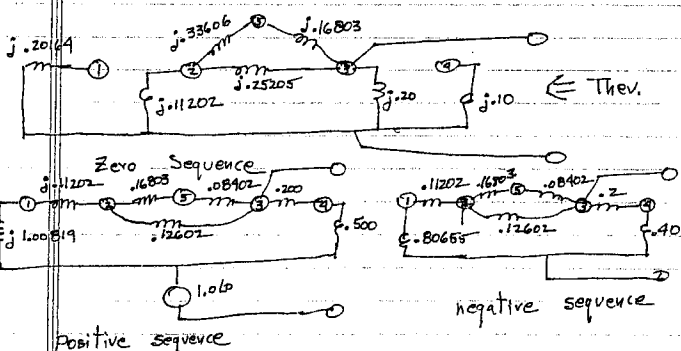 j.20164
①
j.33606
⑤
j.16803
②
j.25205
③
④
j.11202
j.20
j.10
⇐ Thev.
Zero Sequence
① j.11202 ② .16803 ⑤ .08402 ③ .200 ④
j1.00819
.12602
.500
1.0L0
Positive sequence
① .11202 ② .16803 ⑤ .08402 ③ .2 ④
.80655
.12602
.40
negative sequence